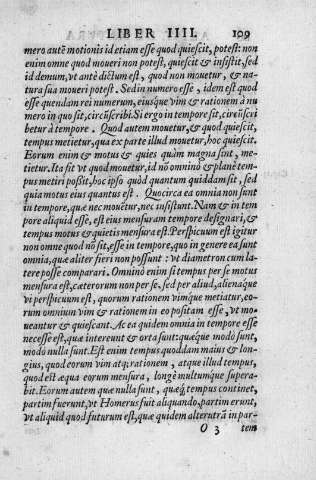 LIBER IIII. 109
mero autē motionis id etiam esse quod quiescit, potest: non
enim omne quod moueri non potest, quiescit & insistit, sed
id demum, vt antè dictum est, quod non mouetur, & na-
tura sua moueri potest. Sed in numero esse, idem est quod
esse quendam rei numerum, eiusque vim & rationem à nu
mero in quo sit, circūscribi. Si ergo in tempore sit, circūscri
betur à tempore. Quod autem mouetur, & quod quiescit,
tempus metietur, qua ex parte illud mouetur, hoc quiescit.
Eorum enim & motus & quies quàm magna sint, me-
tietur. Ita fit vt quod mouetur, id nō omninò & planè tem-
pus metiri poßit, hoc ipso quòd quantum quiddam sit, sed
quia motus eius quantus est. Quocirca ea omnia non sunt
in tempore, quæ nec mouētur, nec insistunt. Nam & in tem
pore aliquid esse, est eius mensuram tempore designari, &
tempus motus & quietis mensura est. Perspicuum est igitur
non omne quod nō sit, esse in tempore, quo in genere ea sunt
omnia, quæ aliter fieri non possunt: vt diametron cum la-
tere posse comparari. Omninò enim si tempus per se motus
mensura est, cæterorum non per se, sed per aliud, alienaque
vi perspicuum est, quorum rationem vimque metiatur, eo-
rum omnium vim & rationem in eo positam esse, vt mo-
ueantur & quiescant. Ac ea quidem omnia in tempore esse
necesse est, quæ intereunt & orta sunt: quæque modò sunt,
modò nulla sunt. Est enim tempus quoddam maius & lon-
gius, quod eorum vim atq; rationem, atque illud tempus,
quod est æqua eorum mensura, longè multumque supera-
bit. Eorum autem quæ nulla sunt, quæq; tempus continet,
partim fuerunt, vt Homerus fuit aliquando, partim erunt,
vt aliquid quod futurum est, quæ quidem alterutrā in par-
O 3 tem